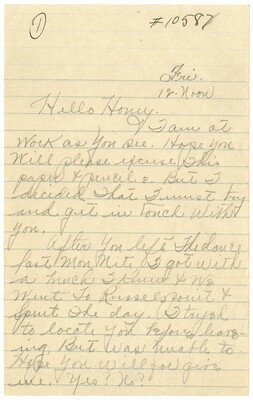 1
#10587
Fri.
12-Noon
Hello Honey.
I am at
Work as You see. Hope You
Will please excuse This
paper & pencil. But I
decided That I must try
and get in Touch With
You.
After You left The dance
last Mon Nite, I got With
a bunch I knew & We
Went To Russels point &
Spent The day. I tryed
to locate You before leav-
ing. But Was unable to.
Hope You Will for give
me. Yes? No?